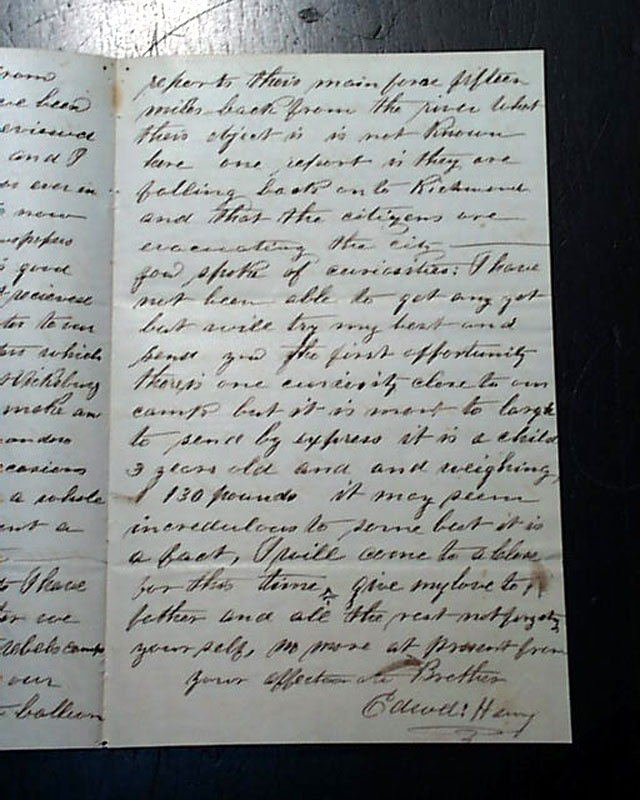 from
ve been
reviewed
and I
as ever in
now
good
recieved
ter to our
ters which
Vicksburg
make an
casions
a whole
ent a
to I have
ter we
rebels camp
our
balloon
reports their main force fifteen
miles back from the river what
their object is is not known
here one report is they are
falling back on to Richmond
and that the citizens are
evacuating the city
you spoke of curiosities: I have
not been able to get any yet
but will try my best and
send you the first opportunity
there,s one curiosity close to our
camp but it is most to large
to send by express it is a child
3 years old and and weighing
130 pounds it may seem
incredulous to some but it is
a fact, I will come to a close
for this time, give my love to
father and all the rest not forgeting
your self, no more at present from
your affectionate Brother
Edwd: Henry